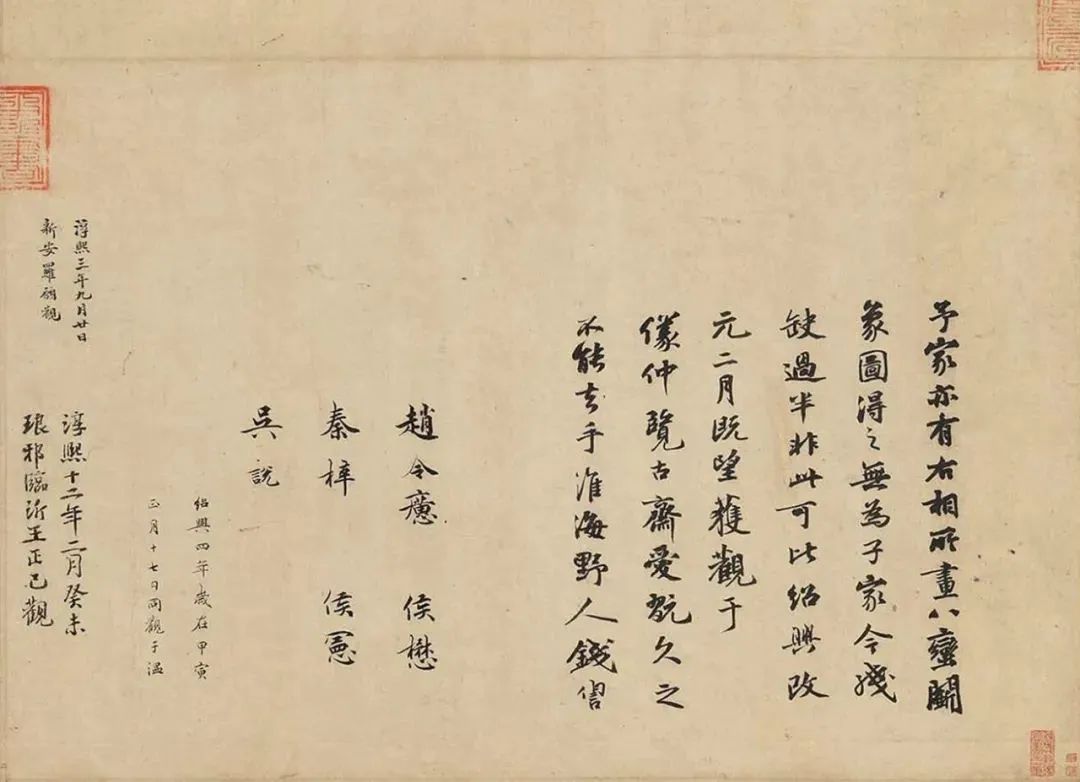 予家亦有右相所畫八蠻鬭
象圖得之無為子家今殘
缺過半非此可比紹興改
元二月既望獲觀于
儀仲覽古齋愛翫久之
不能去手淮海野人錢
趙令 侯懋
秦梓 侯
吳說
紹興四年歲在甲寅
正月十七日雨觀于溫
淳熙三年九月廿日
新安羅觀
淳熙十二年二月癸未
琅邪臨沂王正己觀